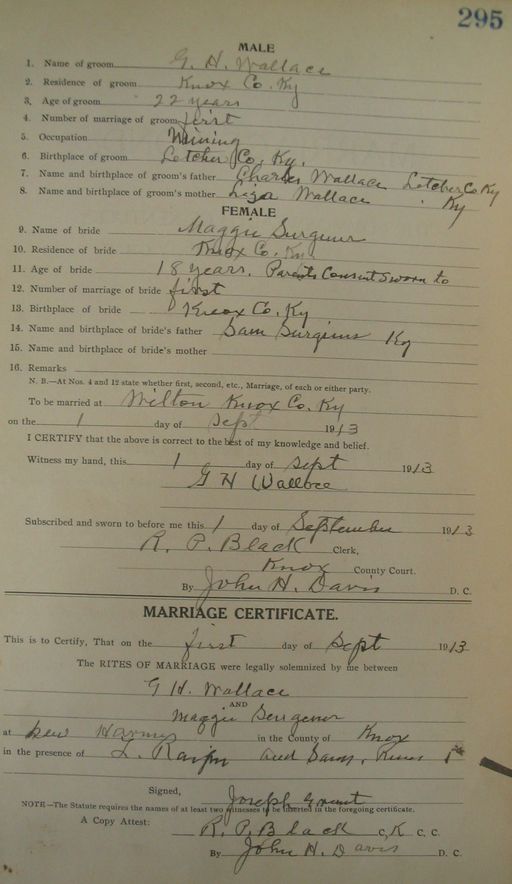 295
MALE
1. Name of groom G. H. Wallace
2. Residence of groom Knox Co. Ky
3. Age of groom 22 years
4. Number of marriage of groom first
5. Occupation Mining
6. Birthplace of groom Letcher Co, Ky.
7. Name and birthplace of groom's father Charles Wallace Letcher Co Ky
8. Name and birthplace of groom's mother Liza Wallace Ky
FEMALE
9. Name of bride Maggie
10. Residence of bride Knox Co. Ky
11. Age of bride 18 years. Parents Consent Sworn to
12. Number of marriage of bride first
13. Birthplace of bride Knox Co. Ky
14. Name and birthplace of bride's father Sam Ky
15. Name and birthplace of bride's mother
16. Remarks
N. B.—At Nos. 4 and 12 state whether first, second, etc., Marriage, of each or either party.
To be married at Wilton Knox Co. Ky
on the 1 day of Sept 1913
I CERTIFY that the above is correct to the best of my knowledge and belief.
Witness my hand, this 1 day of Sept 1913
G H Wallace
Subscribed and sworn to before me this 1 day of September 1913
R. P. Black Clerk,
Knox County Court.
By John H. Davis D. C.
MARRIAGE CERTIFICATE.
This is to Certify, That on the first day of Sept 1913
The RITES OF MARRIAGE were legally solemnized by me between
G H. Wallace
AND
Maggie
at in the County of Knox
in the presence of and
Signed, Joseph Grant
NOTE—The Statute requires the names of at least two witnesses to be inserted in the foregoing certificate.
A Copy Attest: R. P. Black C. K C. C.
By John H. Davis D. C.